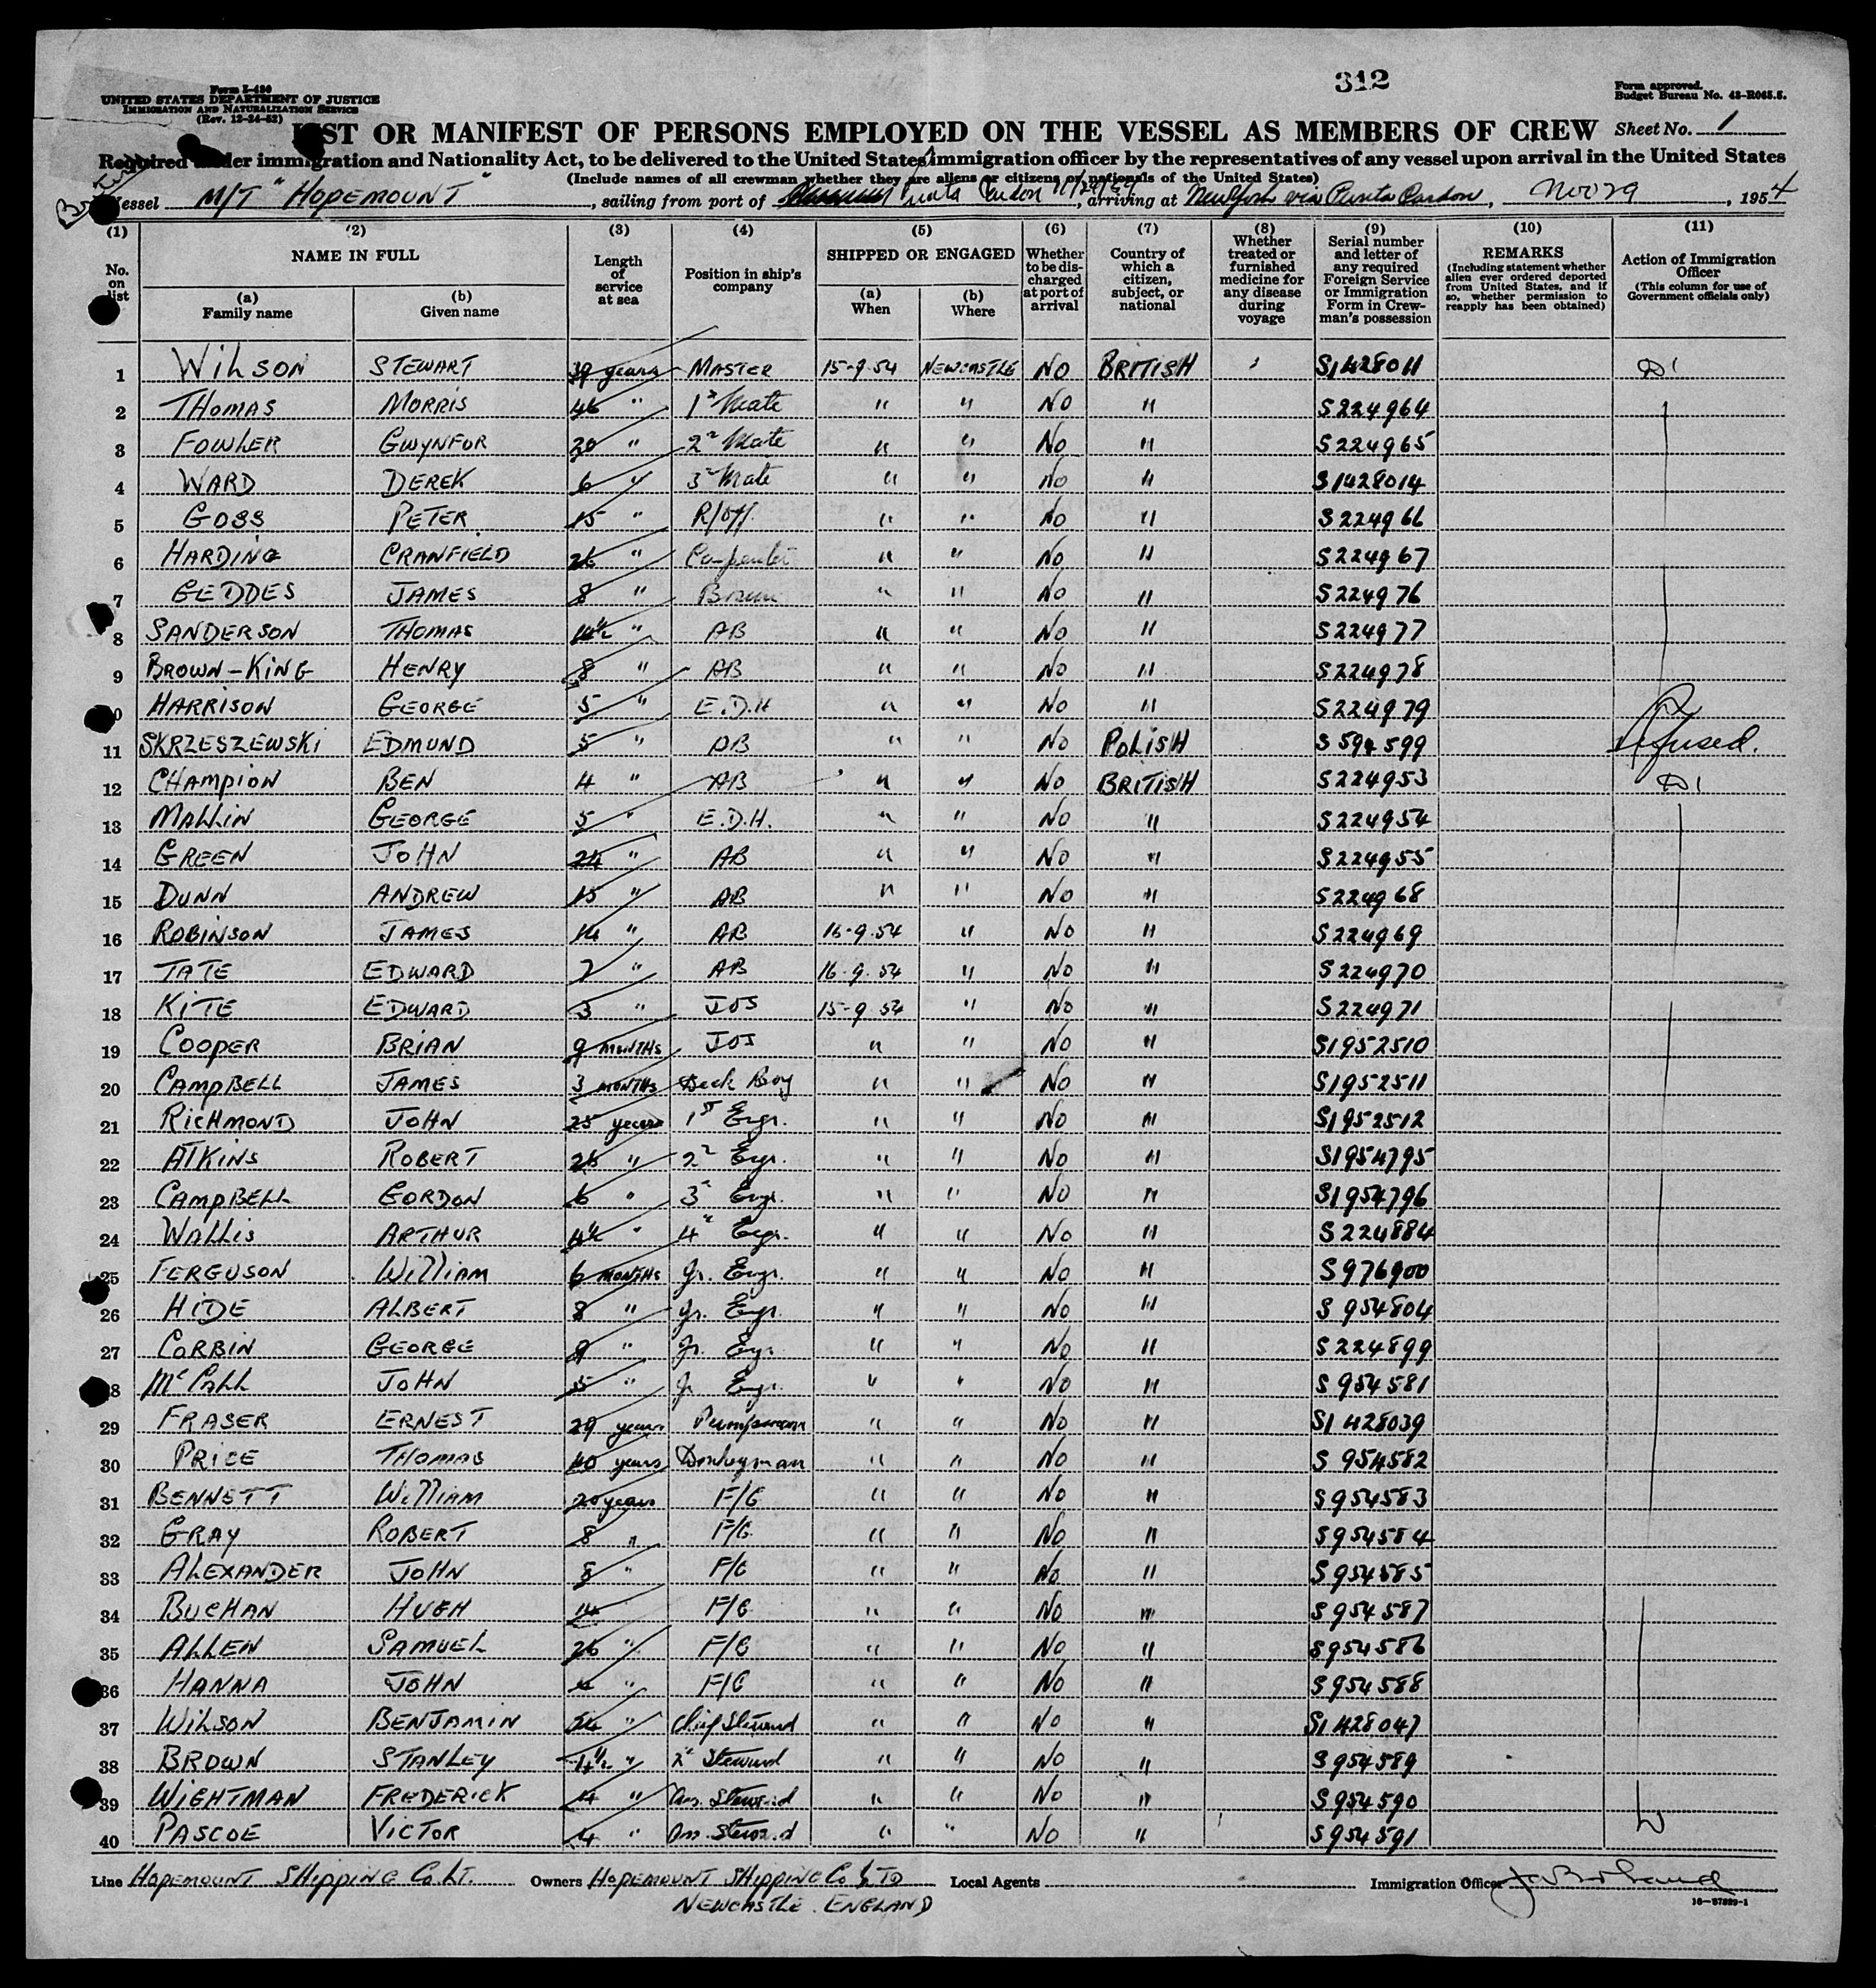 312
Form I-480
UNITED STATES DEPARTMENT OF JUSTICE
IMMIGRATION AND NATURALIZATION SERVICE
(Rev. 12-24-52)
Form approved.
Budget Bureau No. 43-R065.5.
LIST OR MANIFEST OF PERSONS EMPLOYED ON THE VESSEL AS MEMBERS OF CREW Sheet No. 1
Required under immigration and Nationality Act, to be delivered to the United States immigration officer by the representatives of any vessel upon arrival in the United States
(Include names of all crewman whether they are aliens or citizens or nationals of the United States)
Vessel M/T "HOPEMOUNT", sailing from port of Punta Cardon, arriving at New York via Punta Cardon, Nov 29, 1954
(1) (2) (3) (4) (5) (6) (7) (8) (9) (10) (11)
No. on list NAME IN FULL (a) Family name (b) Given name Length of service at sea Position in ship's company SHIPPED OR ENGAGED (a) When (b) Where Whether to be discharged at port of arrival Country of which a citizen, subject, or national Whether treated or furnished medicine for any disease during voyage Serial number and letter of any required Foreign Service or Immigration Form in Crewman's possession REMARKS (Including statement whether alien ever ordered deported from United States, and if so, whether permission to reapply has been obtained) Action of Immigration Officer (This column for use of Government officials only)
1 WILSON STEWART 39 years MASTER 15-9-54 NEWCASTLE NO BRITISH S1428011 D1
2 THOMAS MORRIS 46 " 1st Mate " " NO " S224964
3 FOWLER GWYNFOR 20 " 2nd Mate " " NO " S224965
4 WARD DEREK 6 " 3rd Mate " " NO " S1428014
5 GOSS PETER 15 " R/Off. " " NO " S224966
6 HARDING CRANFIELD 26 " Carpenter " " NO " S224967
7 GEDDES JAMES 8 " " " NO " S224976
8 SANDERSON THOMAS " AB " " NO " S224977
9 BROWN-KING HENRY 8 " AB " " NO " S224978
10 HARRISON GEORGE 5 " E.D.H " " NO " S224979
11 SKRZESZEWSKI EDMUND 5 " AB " " NO POLISH S594599 Refused.
12 CHAMPION BEN 4 " AB " " NO BRITISH S224953 D1
13 MALLIN GEORGE 5 " E.D.H. " " NO " S224954
14 GREEN JOHN 24 " AB " " NO " S224955
15 DUNN ANDREW 15 " AB " " NO " S224968
16 ROBINSON JAMES 14 " AB 16-9-54 " NO " S224969
17 TATE EDWARD 7 " AB 16-9-54 " NO " S224970
18 KITE EDWARD 3 " JOS 15-9-54 " NO " S224971
19 COOPER BRIAN 9 MONTHS JOS " " NO " S1952510
20 CAMPBELL JAMES 3 MONTHS Deck Boy " " NO " S1952511
21 RICHMOND JOHN 25 years 1st Engr. " " NO " S1952512
22 ATKINS ROBERT 26 " 2nd Engr. " " NO " S1954795
23 CAMPBELL GORDON 6 " 3rd Engr. " " NO " S1954796
24 WALLIS ARTHUR 4½ " 4th Engr. " " NO " S224884
25 FERGUSON WILLIAM 6 MONTHS Jr. Engr. " " NO " S976900
26 HIDE ALBERT 8 " Jr. Engr. " " NO " S954804
27 CORBIN GEORGE 9 " Jr. Engr. " " NO " S224899
28 McCALL JOHN 5 " Jr Engr. " " NO " S954581
29 FRASER ERNEST 29 years Pumpman " " NO " S1428039
30 PRICE THOMAS 40 years Donkeyman " " NO " S954582
31 BENNETT WILLIAM 20 years F/G " " NO " S954583
32 GRAY ROBERT 8 " F/G " " NO " S954584
33 ALEXANDER JOHN 8 " F/G " " NO " S954585
34 BUCHAN HUGH 14 F/G " " NO " S954587
35 ALLEN SAMUEL 26 " F/G " " NO " S954586
36 HANNA JOHN 4 " F/G " " NO " S954588
37 WILSON BENJAMIN " Chief Steward " " NO " S1428047
38 BROWN STANLEY " 2nd Steward " " NO " S954589
39 WIGHTMAN FREDERICK 14 " Ass. Steward " " NO " S954590
40 PASCOE VICTOR 4 " Ass. Steward " " NO " S954591
Line HOPEMOUNT SHIPPING Co. LT. Owners HOPEMOUNT SHIPPING Co LTD Local Agents Immigration Officer
NEWCASTLE. ENGLAND
16-67829-1